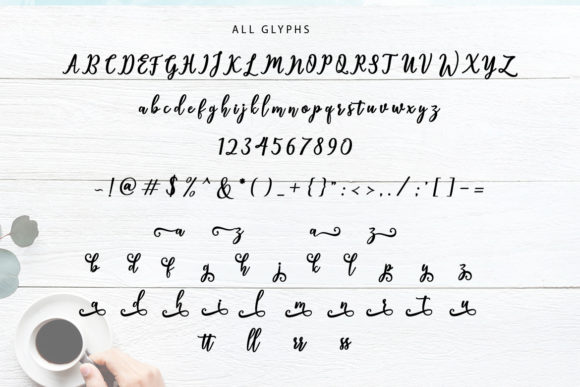 ALL GLYPHS
ABCDEFGHIJKLMNOPQRSTUVWXYZ
abcdefghijklmnopqrstuvwxyz
1234567890
~!@#$%^&*()_+{}":<>,./;'[]-=
a z a z
b d f g h j k l p y z
a d h i l m n r t u
tt ll rr ss